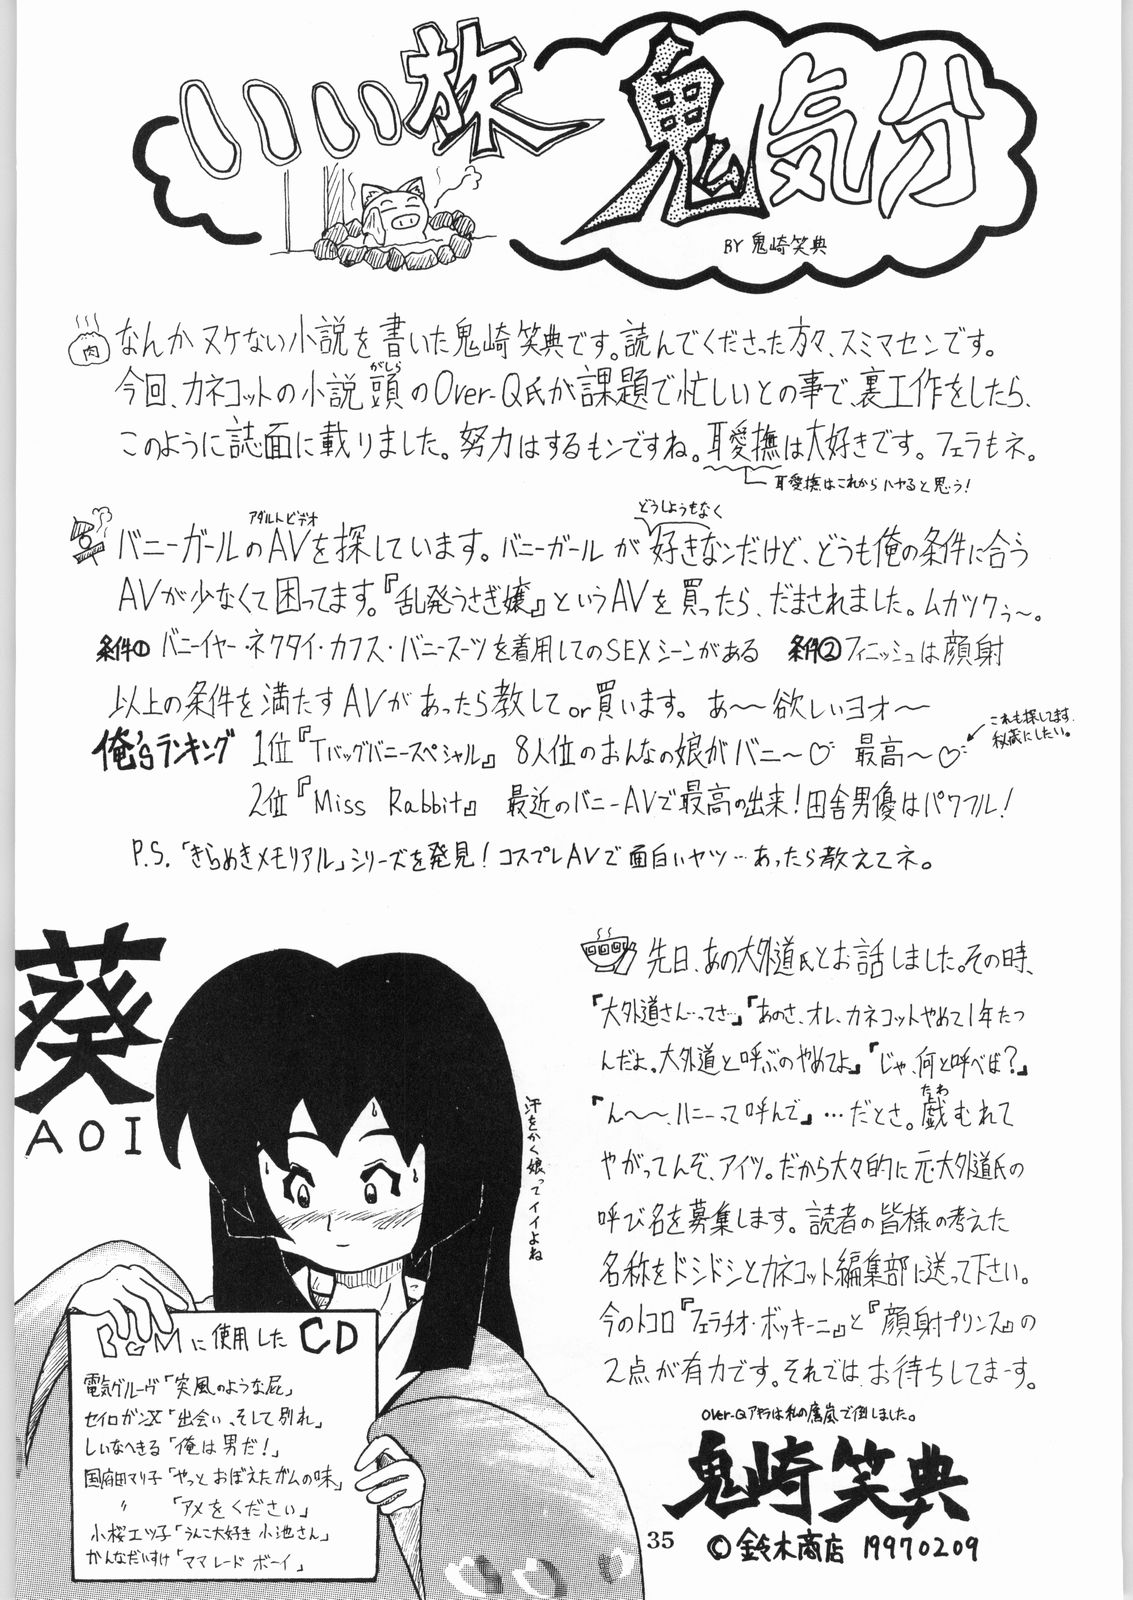 いい旅
鬼気分
BY 鬼崎笑典
肉
なんかヌケない小説を書いた鬼崎笑典です。読んでくださった方々、スミマセンです。
がしら
今回、カネコットの小説頭のOver-Q氏が課題で忙しいとの事で、裏工作をしたら、
このように誌面に載りました。努力はするモンですね。耳愛撫は大好きです。フェラもネ。
耳愛撫はこれからハヤると思う!
アダルトビデオ
どうしようもなく
バニーガールのAVを探しています。バニーガールが好きなンだけど、どうも俺の条件に合う
AVが少なくて困ってます。『乱発うさぎ嬢』というAVを買ったら、だまされました。ムカツクぅ〜。
条件① バニイヤー・ネクタイ・カフス・バニースーツを着用してのSEXシーンがある 条件② フィニッシュは顔射
以上の条件を満たすAVがあったら教して or 買います。あ〜〜欲しいヨオ〜
これも探してます。
秘蔵にしたい。
俺'sランキング 1位『Tバッグバニースペシャル』 8人位のおんなの娘がバニ〜♡ 最高〜♡
2位『Miss Rabbit』 最近のバニーAVで最高の出来!田舎男優はパワフル!
P.S.「きらめきメモリアル」シリーズを発見!コスプレAVで面白いヤツ…あったら教えてネ。
葵
AOI
汗をかく娘ってイイよね
BGMに使用したCD
電気グルーヴ「突風のような屁」
セイロガンX「出会い、そして別れ」
しいなへきる「俺は男だ!」
国府田マリ子「やっとおぼえたガムの味」
〃 「アメをください」
小桜エツ子「うんこ大好き小池さん」
かんなだいすけ「ママレードボーイ」
先日、あの大外道氏とお話しました。その時、
『大外道さん…ってさ…』『あのさ、オレ、カネコットやめて1年たつ
んだよ。大外道と呼ぶのやめてよ』『じゃ、何と呼べば?』
たわ
『ん〜〜、ハニーって呼んで』…だとさ。戯むれて
やがってんぞ、アイツ。だから大々的に元・大外道氏の
呼び名を募集します。読者の皆様の考えた
名称をドシドシとカネコット編集部に送って下さい。
今のトコロ『フェラチオ・ボッキーニ』と『顔射プリンス』の
2点が有力です。それでは、お待ちしてまーす。
Over-Qアキラは私の唐嵐で倒しました。
鬼崎笑典
35
©鈴木商店 19970209